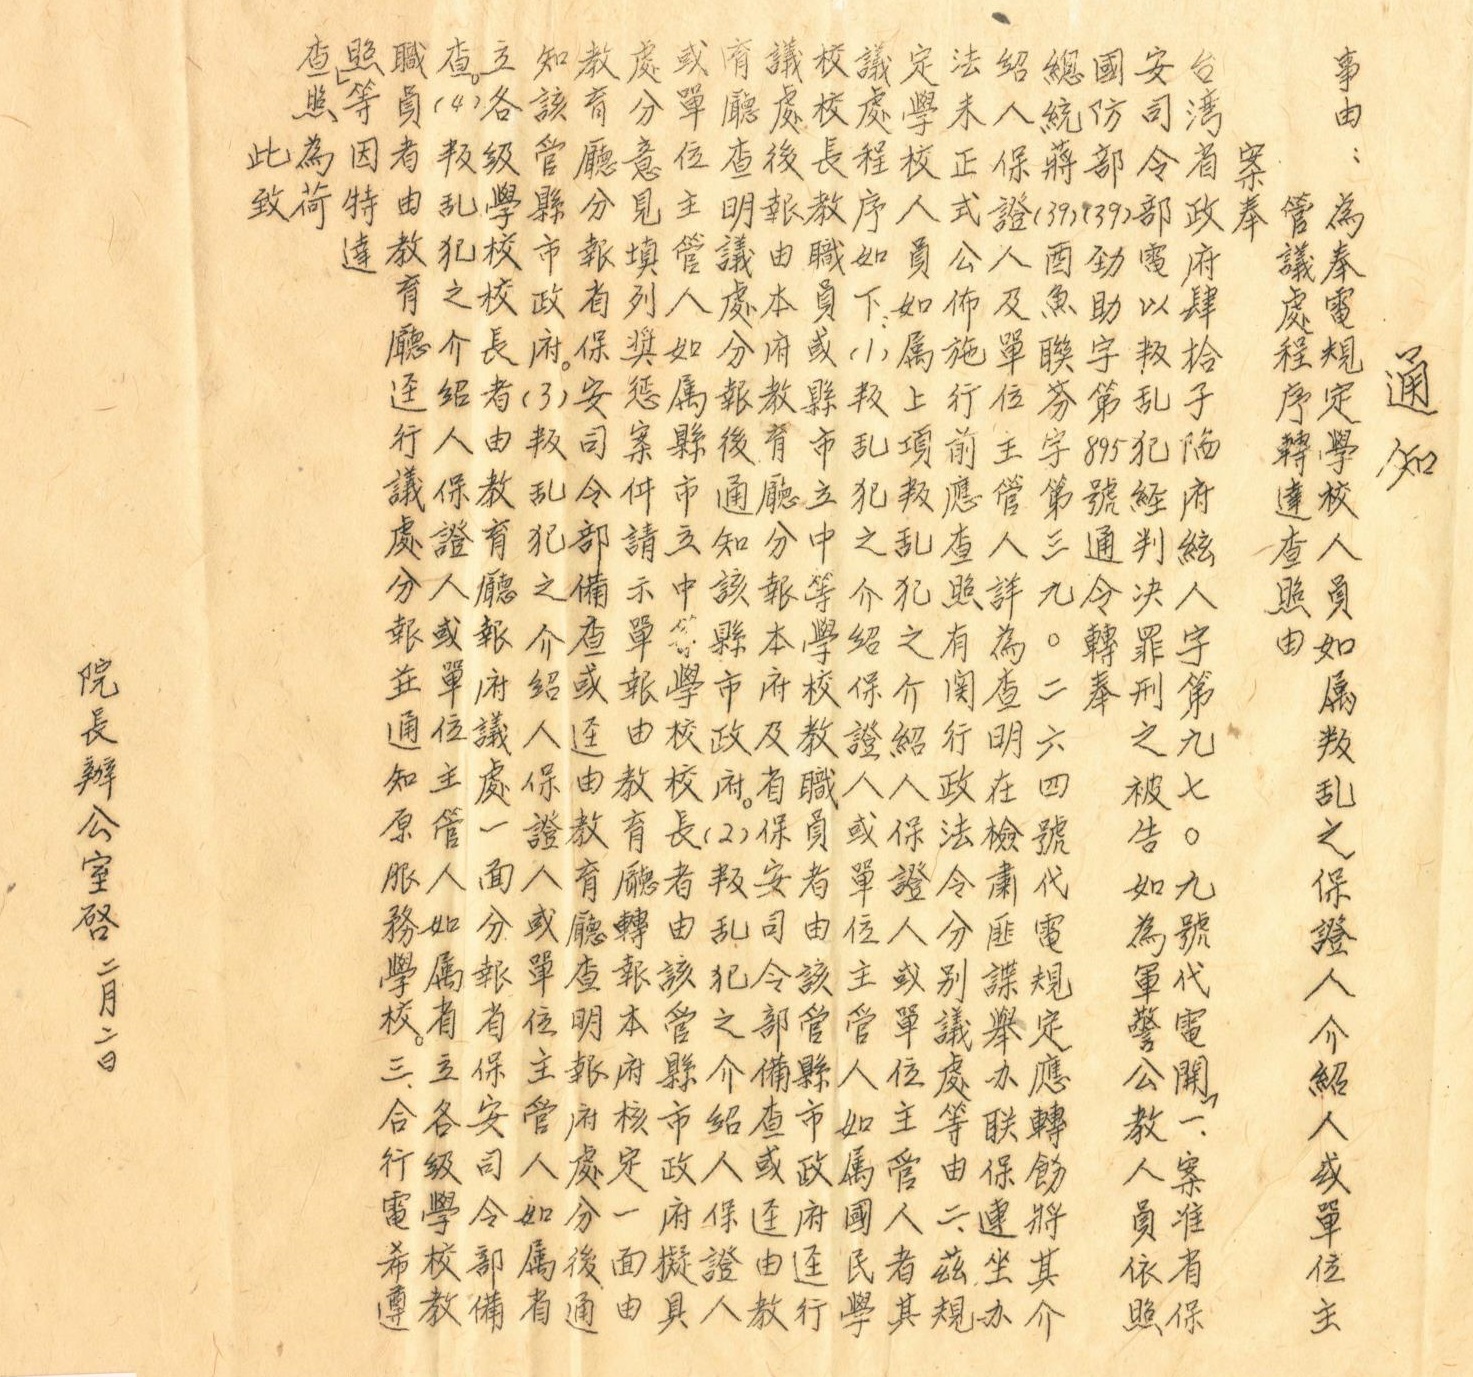 通知
事由：為奉電規定學校人員如属叛乱之保證人介紹人或單位主
管議處程序轉達查照由
案奉
台湾省政府肆拾子陷府絃人字第九七〇九號代電開「一、案准省保
安司令部電以叛乱犯経判决罪刑之被告如為軍警公教人員依照
國防部(39)勁助字第895號通令轉奉
總統蔣(39)酉魚聯芬字第三九〇二六四號代電規定應轉飭將其介
紹人保證人及單位主管人詳為查明在檢肅匪諜舉办联保連坐办
法未正式公佈施行前應查照有関行政法令分别議處等由二、茲規
定學校人員如属上項叛乱犯之介紹人保證人或單位主管人者其
議處程序如下：(1)叛乱犯之介紹保證人或單位主管人如属國民學
校校長教職員或縣市立中等學校教職員者由該管縣市政府迳行
議處後報由本府教育廳分報本府及省保安司令部備查或迳由教
育廳查明議處分報後通知該縣市政府。(2)叛乱犯之介紹人保證人
或單位主管人如属縣市立中等學校校長者由該管縣市政府擬具
處分意見填列奨惩案件請示單報由教育廳轉報本府核定一面由
教育廳分報省保安司令部備查或迳由教育廳查明報府處分後通
知該管縣市政府。(3)叛乱犯之介紹人保證人或單位主管人如属省
立各級學校校長者由教育廳報府議處一面分報省保安司令部備
查。(4)叛乱犯之介紹人保證人或單位主管人如属省立各級學校教
職員者由教育廳迳行議處分報並通知原服務學校。三、合行電希遵
照」等因特達
查照為荷
此致
院長辦公室啓 二月二日